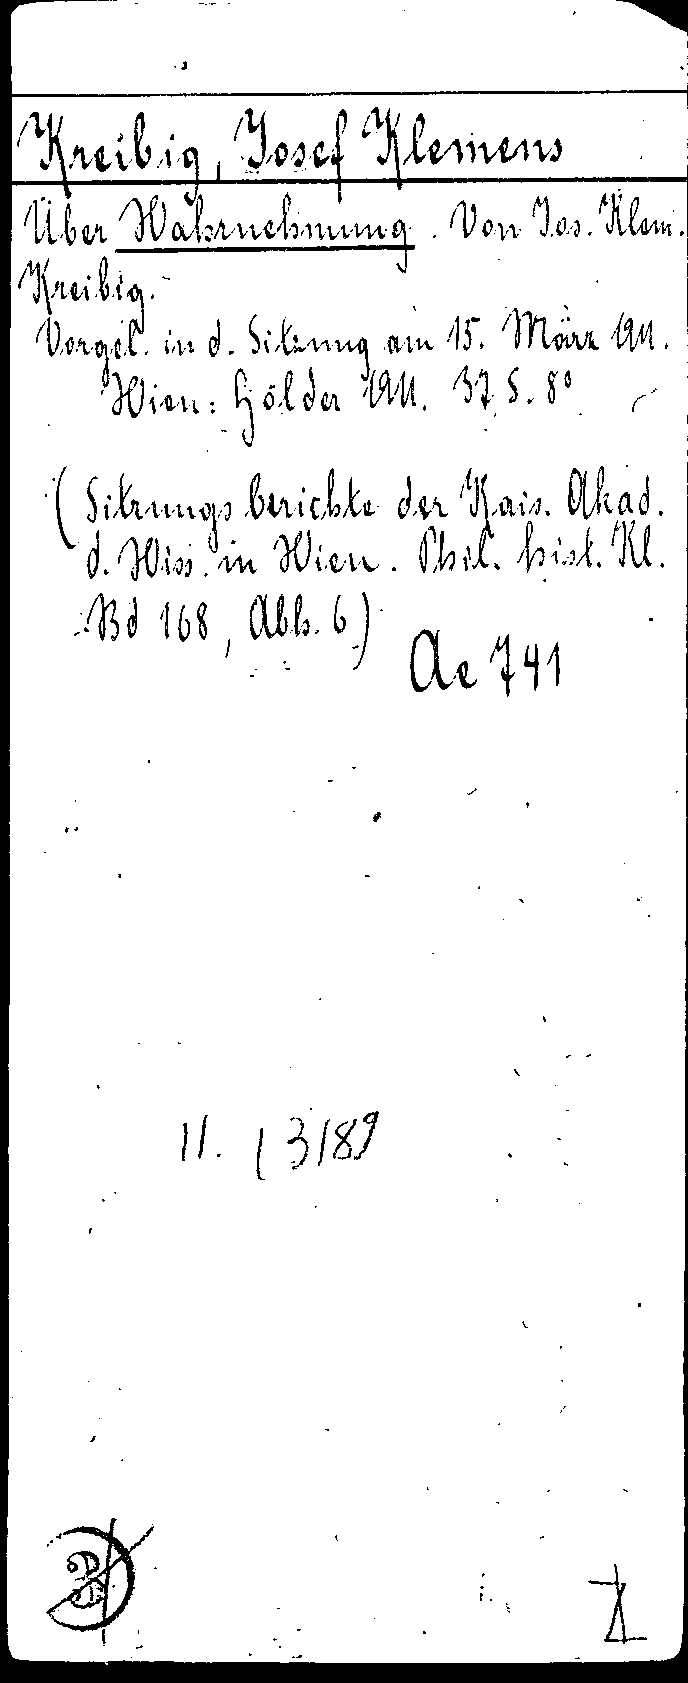 Kreibig, Josef Klemens
Über Wahrnehmung. Von Jos. Klem.
Kreibig.
Vorgel. in d. Sitzung am 15. März 1911.
Wien: Hölder 1911. 37 S. 8°
(Sitzungsberichte der Kais. Akad.
d. Wiss. in Wien. Phil. hist. Kl.
Bd 168, Abh. 6)
Ae 741
11. 13189